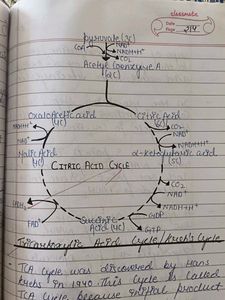 classmate
Date
Page 214
pyruvate (3C)
CoA
NAD⁺
NADH+H⁺
CO₂
Acetyl Coenzyme A
(2C)
Oxaloacetic acid
(4C)
Citric Acid
(6C)
CO₂
NAD⁺
NADH+H⁺
α-ketoglutaric acid
(5C)
NADH+H⁺
NAD⁺
Malic Acid
(4C)
CITRIC ACID CYCLE
CO₂
NAD⁺
NADH+H⁺
FADH₂
FAD⁺
Succinic
Acid (4C)
GDP
GTP
Tricarboxylic Acid Cycle/Kreb's Cycle
TCA Cycle was discovered by Hans
Kreb in 1940. This cycle is called
TCA Cycle because initial product